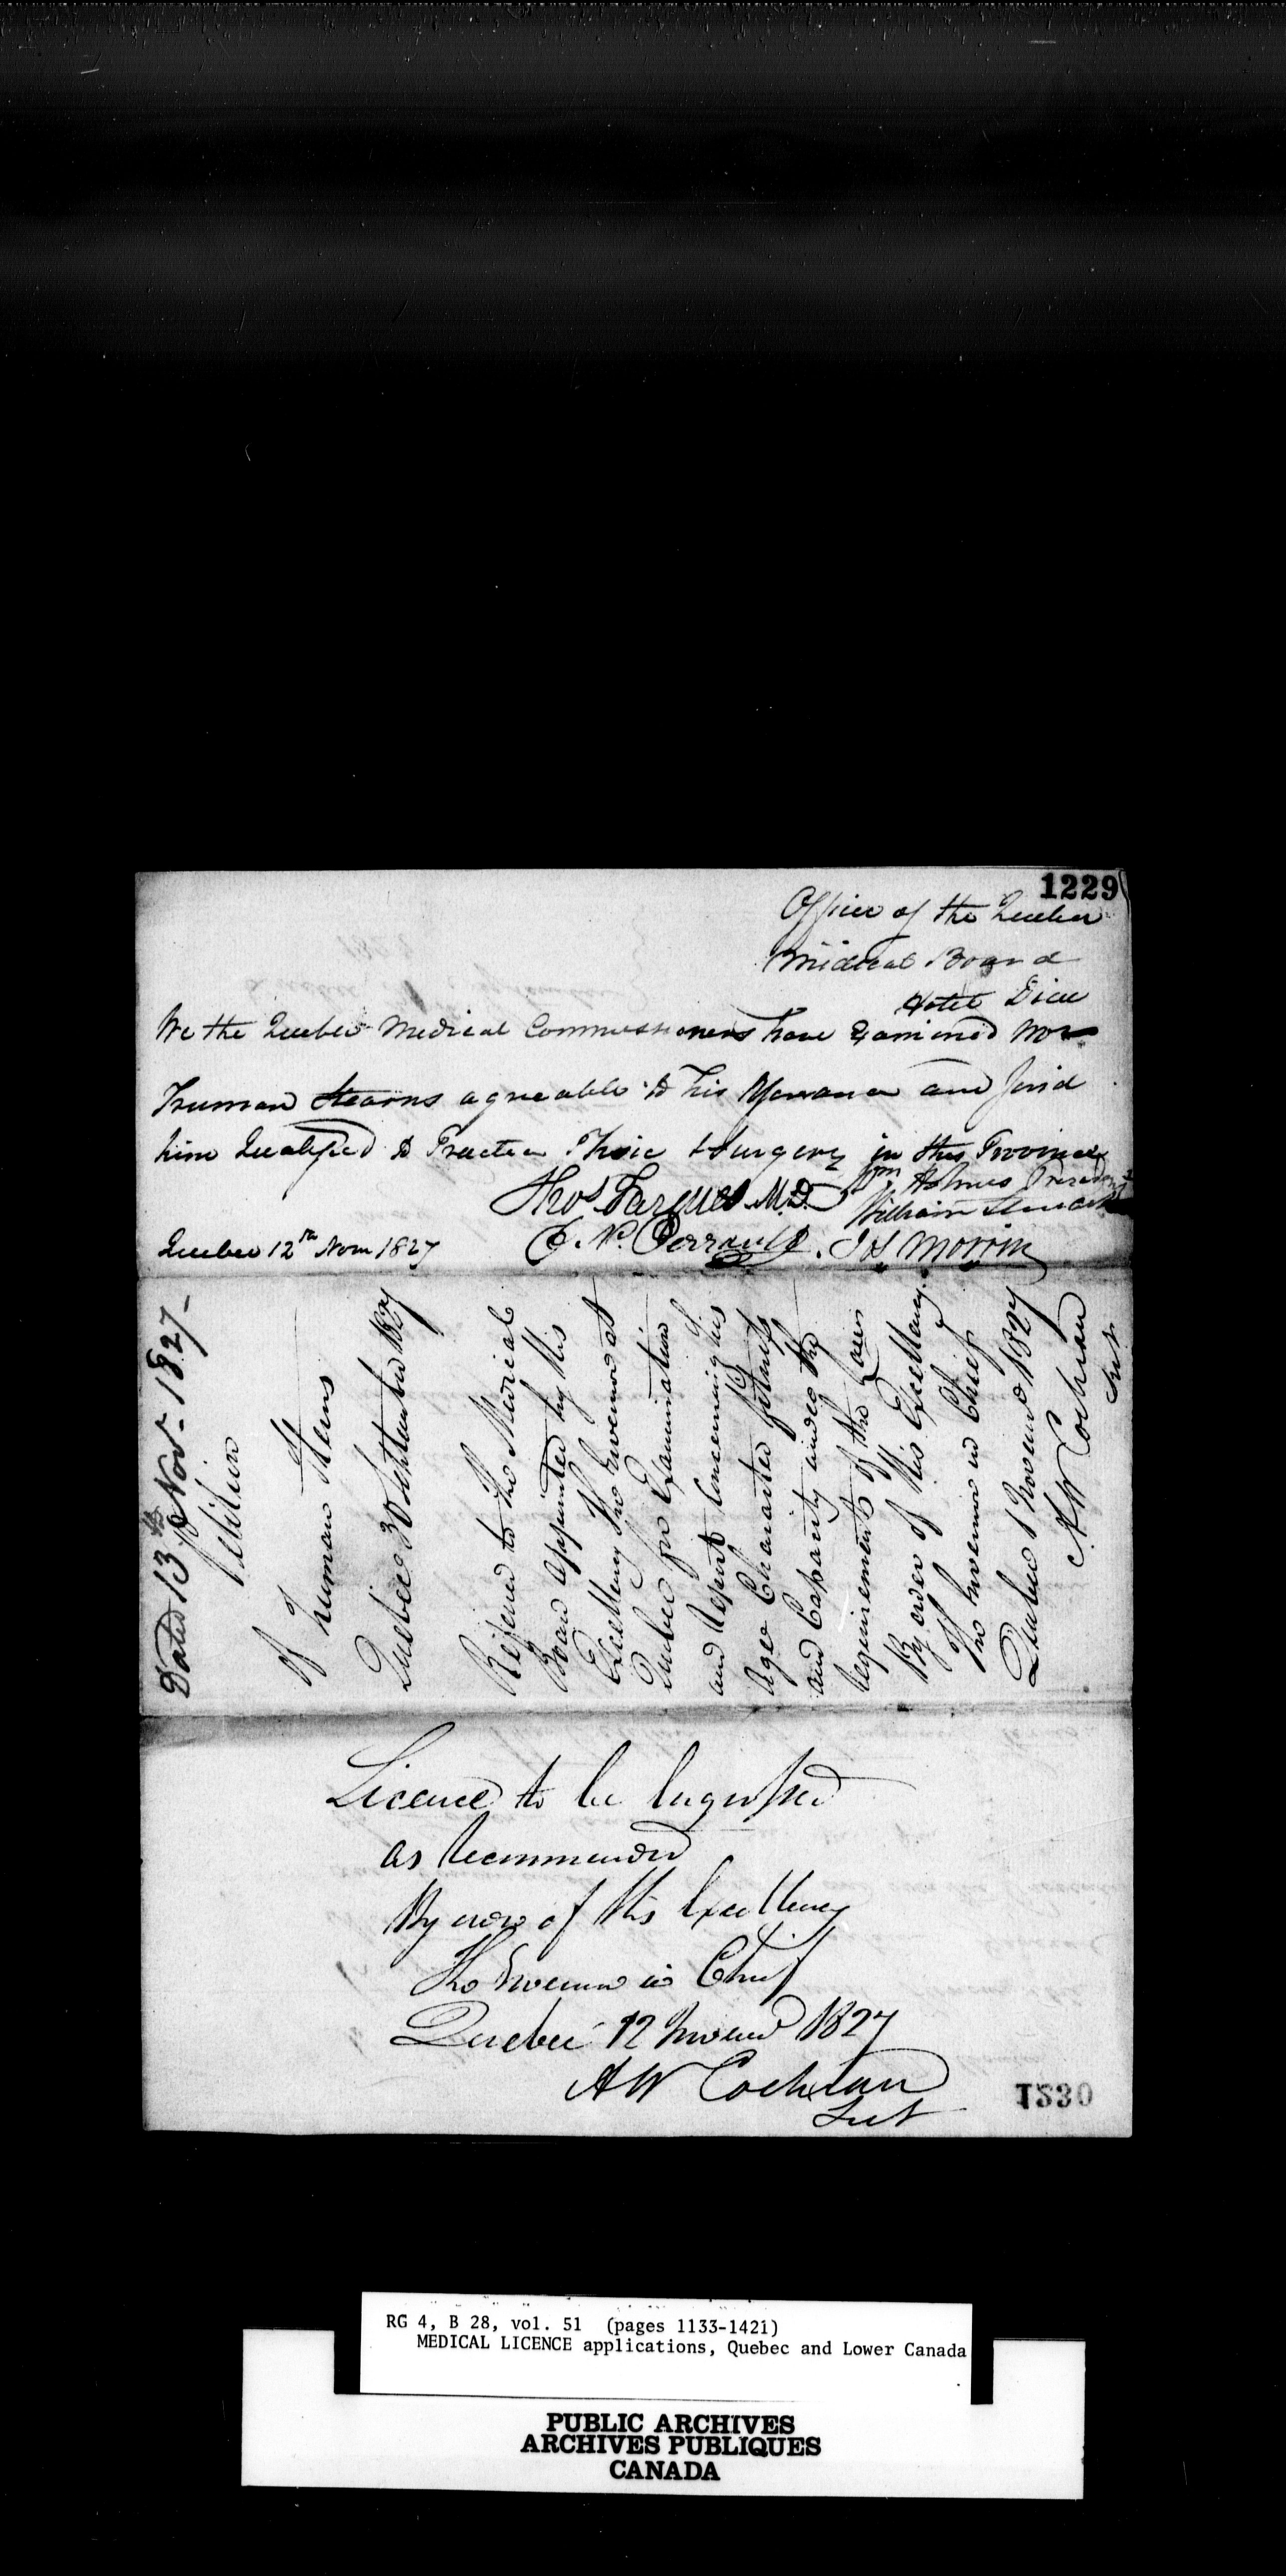 1229
Office of the Quebec
Medical Board
Hotel Dieu
We the Quebec Medical Commissioners have Examined
Truman Stearns agreable to his and find
him Qualified to Practice & Surgery in this Province
Wm Holmes President
Thos Fargues M.D. William
C. N. Perrault. Js Morrin
Quebec 12th Novr 1827
Dated 13th Novr 1827-
Petition
Of Truman Sterns
Quebec 30 September 1827
Referred to the Medical
Board appointed by His
Excellency The Governor at
Quebec for Examination
and Report Concerning his
Age Character fitness
and Capacity under the
requirements of the Laws
By order of His Excellency
The Governor in Chief
Quebec 1 November 1827
A W Cochran
Sect
Licence to be Engrossed
as Recommended
By order of His Excellency
The Governor in Chief
Quebec 12 Novemr 1827
A W Cochran
Sect
1230
RG 4, B 28, vol. 51 (pages 1133-1421)
MEDICAL LICENCE applications, Quebec and Lower Canada
PUBLIC ARCHIVES
ARCHIVES PUBLIQUES
CANADA